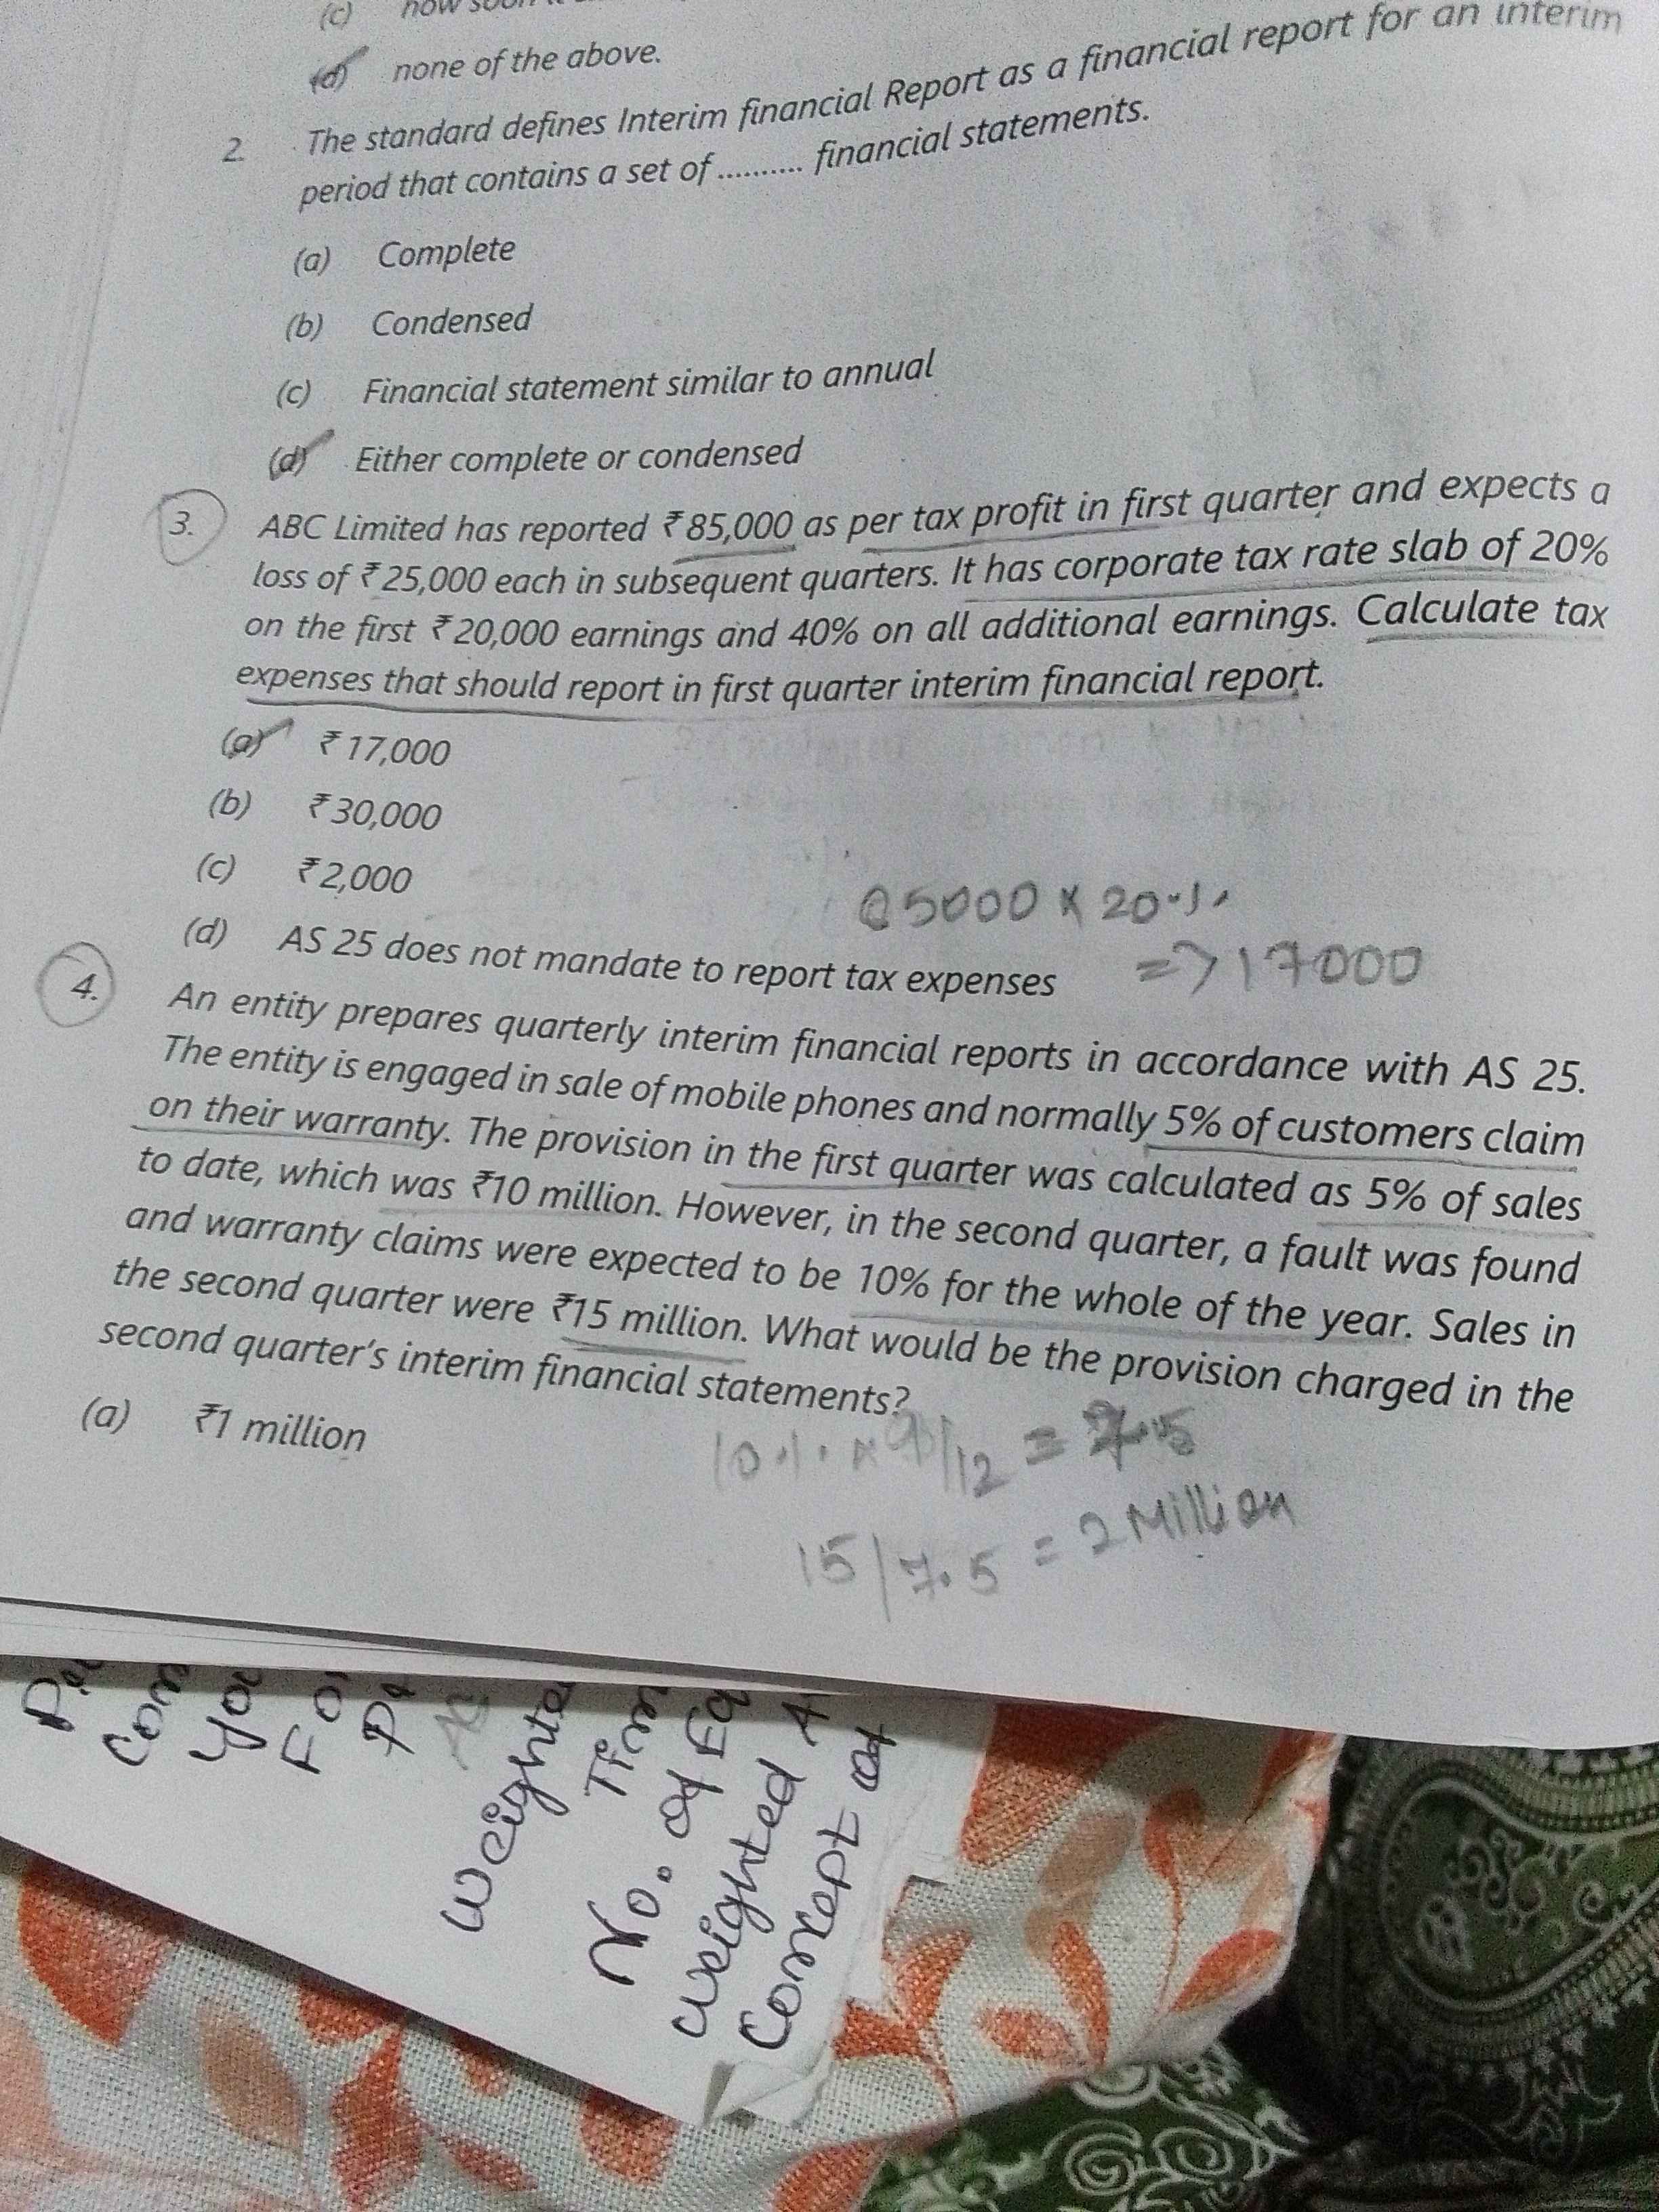 (c) how soon it
(d) none of the above.
2. The standard defines Interim financial Report as a financial report for an interim
period that contains a set of .......... financial statements.
(a) Complete
(b) Condensed
(c) Financial statement similar to annual
(d) Either complete or condensed
3. ABC Limited has reported ₹85,000 as per tax profit in first quarter and expects a
loss of ₹25,000 each in subsequent quarters. It has corporate tax rate slab of 20%
on the first ₹20,000 earnings and 40% on all additional earnings. Calculate tax
expenses that should report in first quarter interim financial report.
(a) ₹17,000
(b) ₹30,000
(c) ₹2,000
85000 x 20%
(d) AS 25 does not mandate to report tax expenses
=> 17000
4. An entity prepares quarterly interim financial reports in accordance with AS 25.
The entity is engaged in sale of mobile phones and normally 5% of customers claim
on their warranty. The provision in the first quarter was calculated as 5% of sales
to date, which was ₹10 million. However, in the second quarter, a fault was found
and warranty claims were expected to be 10% for the whole of the year. Sales in
the second quarter were ₹15 million. What would be the provision charged in the
second quarter's interim financial statements?
(a) ₹1 million
10% x 9/12 = 7.5
15/7.5 = 2 Million
Com
You
Fo
Weighte
Tim
No. of Eq
Weighted A
Concept of